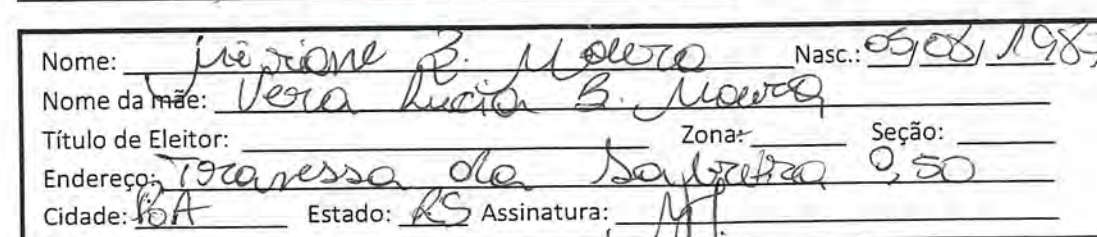 Nome: B. Moura Nasc.: 05/08/198
Nome da mãe: Vera Lucia B. Moura
Título de Eleitor: Zona: Seção:
Endereço: Travessa da 0,50
Cidade: POA Estado: RS Assinatura: